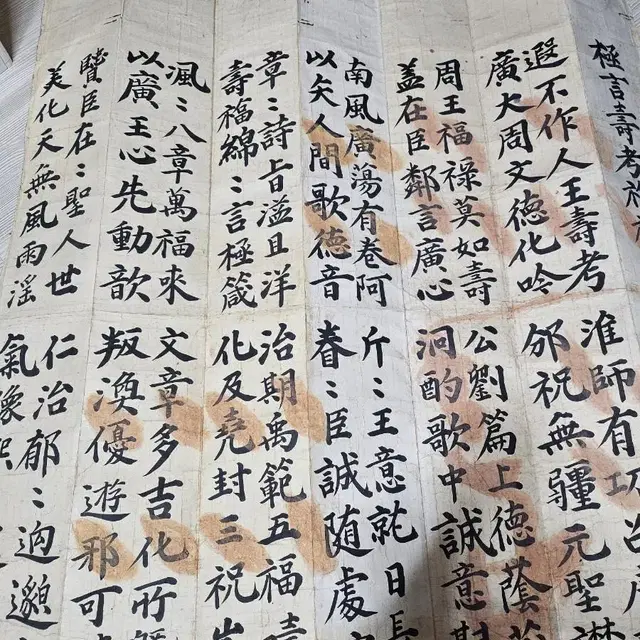 極言壽考福
遐不作人王壽考
廣大周文德化吟
周王福祿莫如壽
蓋在臣鄰言廣心
南風廣蕩有卷阿
以矢人間歌德音
章〻詩旨溢且洋
壽福綿〻言極箴
渢〻八章萬福來
以廣王心先動歆
賢臣在〻聖人世
美化天無風雨淫
淮師有功呂
邠祝無疆元聖
公劉篇上德蔭
泂酌歌中誠意斟
斤〻王意就日長
眷〻臣誠随處
治期禹範五福
化及堯封三祝
文章多吉化所
叛渙優遊邪可
仁治郁〻
氣像